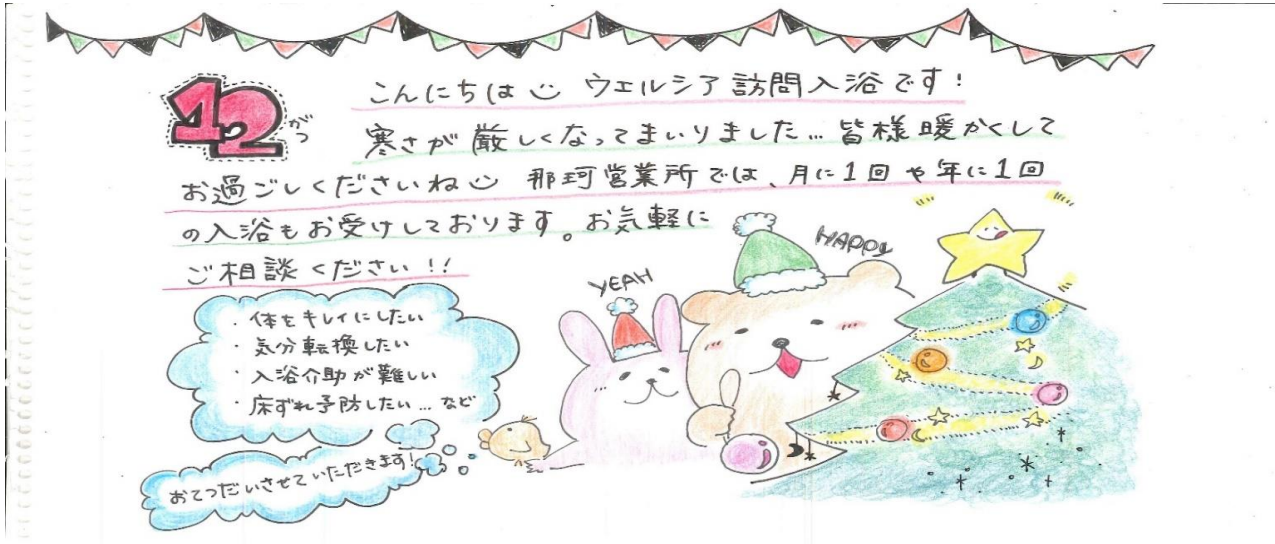 12がつ
こんにちは ウエルシア訪問入浴です!
寒さが厳しくなってまいりました…皆様暖かくして
お過ごしくださいね 那珂営業所では、月に1回や年に1回
の入浴もお受けしております。お気軽に
ご相談ください!!
YEAH
HAPPY
・体をキレイにしたい
・気分転換したい
・入浴介助が難しい
・床ずれ予防したい…など
おてつだいさせていただきます!